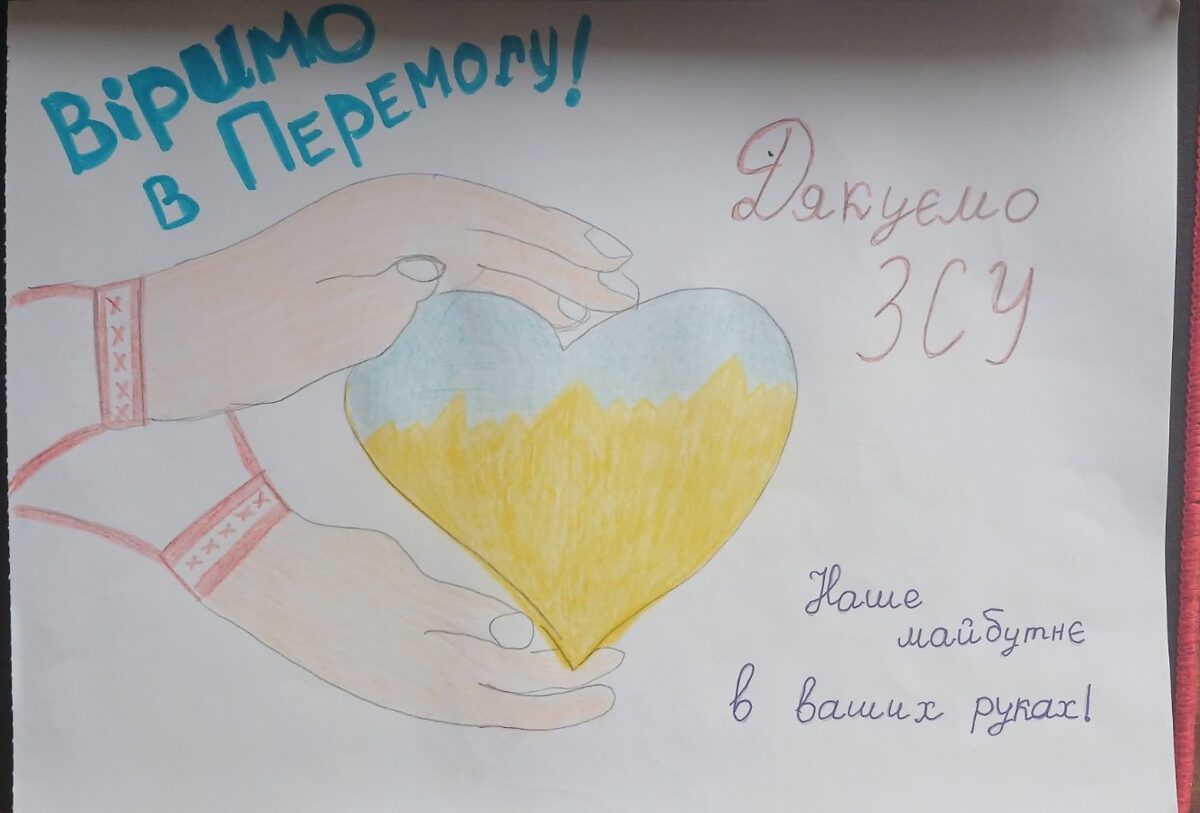 Віримо
в Перемогу!
Дякуємо
ЗСУ
Наше
майбутнє
в ваших руках!